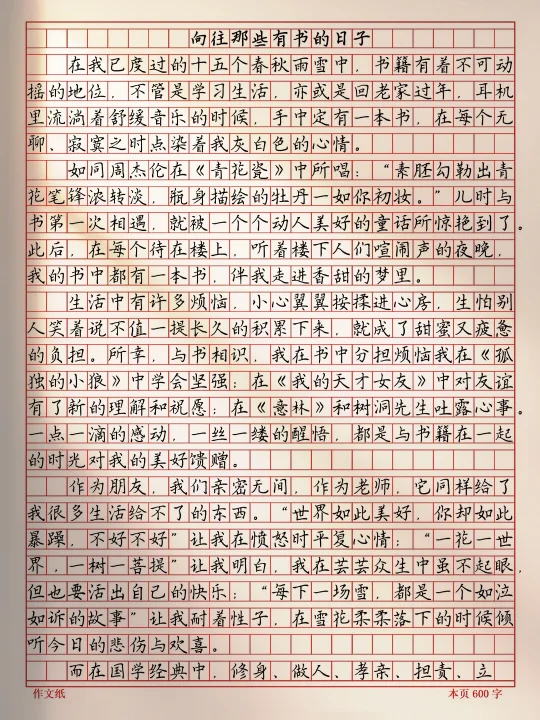 向往那些有书的日子
在我已度过的十五个春秋雨雪中，书籍有着不可动
摇的地位，不管是学习生活，亦或是回老家过年，耳机
里流淌着舒缓音乐的时候，手中定有一本书，在每个无
聊、寂寞之时点染着我灰白色的心情。
如同周杰伦在《青花瓷》中所唱：“素胚勾勒出青
花笔锋浓转淡，瓶身描绘的牡丹一如你初妆。”儿时与
书第一次相遇，就被一个个动人美好的童话所惊艳到了。
此后，在每个待在楼上，听着楼下人们喧闹声的夜晚，
我的书中都有一本书，伴我走进香甜的梦里。
生活中有许多烦恼，小心翼翼按揉进心房，生怕别
人笑着说不值一提长久的积累下来，就成了甜蜜又疲惫
的负担。所幸，与书相识，我在书中分担烦恼我在《孤
独的小狼》中学会坚强；在《我的天才女友》中对友谊
有了新的理解和祝愿；在《意林》和树洞先生吐露心事。
一点一滴的感动，一丝一缕的醒悟，都是与书籍在一起
的时光对我的美好馈赠。
作为朋友，我们亲密无间，作为老师，它同样给了
我很多生活给不了的东西。“世界如此美好，你却如此
暴躁，不好不好”让我在愤怒时平复心情；“一花一世
界，一树一菩提”让我明白，我在芸芸众生中虽不起眼，
但也要活出自己的快乐；“每下一场雪，都是一个如泣
如诉的故事”让我耐着性子，在雪花柔柔落下的时候倾
听今日的悲伤与欢喜。
而在国学经典中，修身、做人、孝亲、担责、立
作文纸
本页 600 字